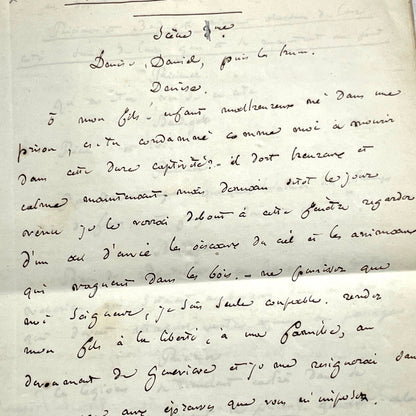 Scène 1ère
Denise, Daniel, puis la
Denise.
ô mon fils! enfant malheureux né dans une
prison, es-tu condamné comme moi à mourir
dans cette dure captivité? - il dort heureux et
calme maintenant - mais demain sitôt le jour
venu je le verrai debout à cette fenêtre regarder
d'un œil d'envie les oiseaux du ciel et les animaux
qui vaguent dans les bois. - ne punissez que
moi Seigneur, je suis seule coupable. rendez
mon fils à la liberté, à une famille, au
dévouement de Geneviève et je me résignerai dans
aux épreuves que vous m'imposez.